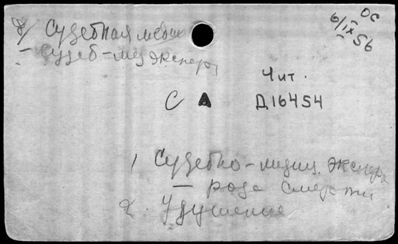 д/ Судебная меди
ОС
6/IX 56
— Судеб-мед экспер
Чит.
С А
Д16454
1 Судебно-медиц. экспер
— рода смерти
2. Удушение